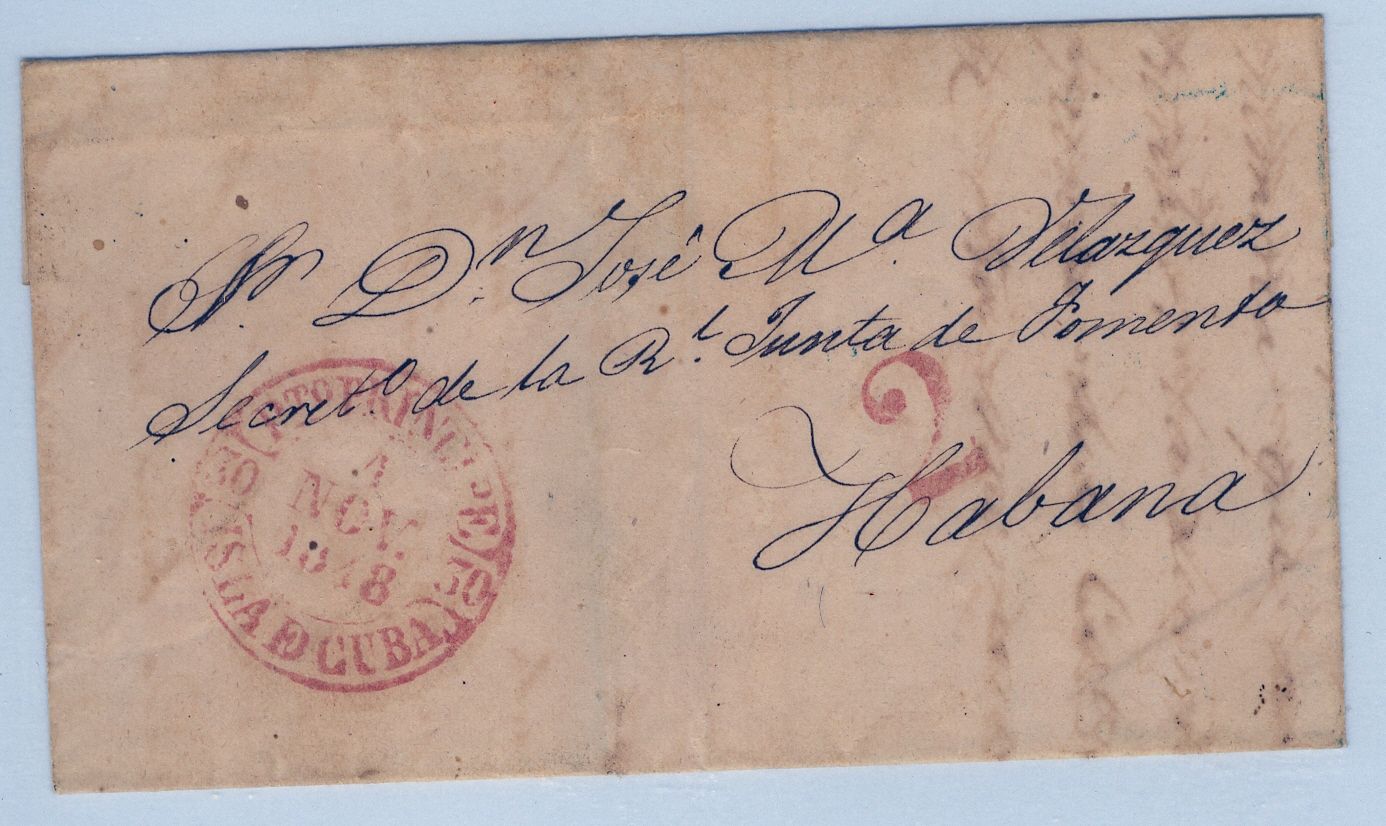 Sr. Dn. José Ma. Velazquez
Secreto. de la Rl. Junta de Fomento
Habana
2
PTO PRINCIPE
4
NOV.
1848
ISLA DE CUBA